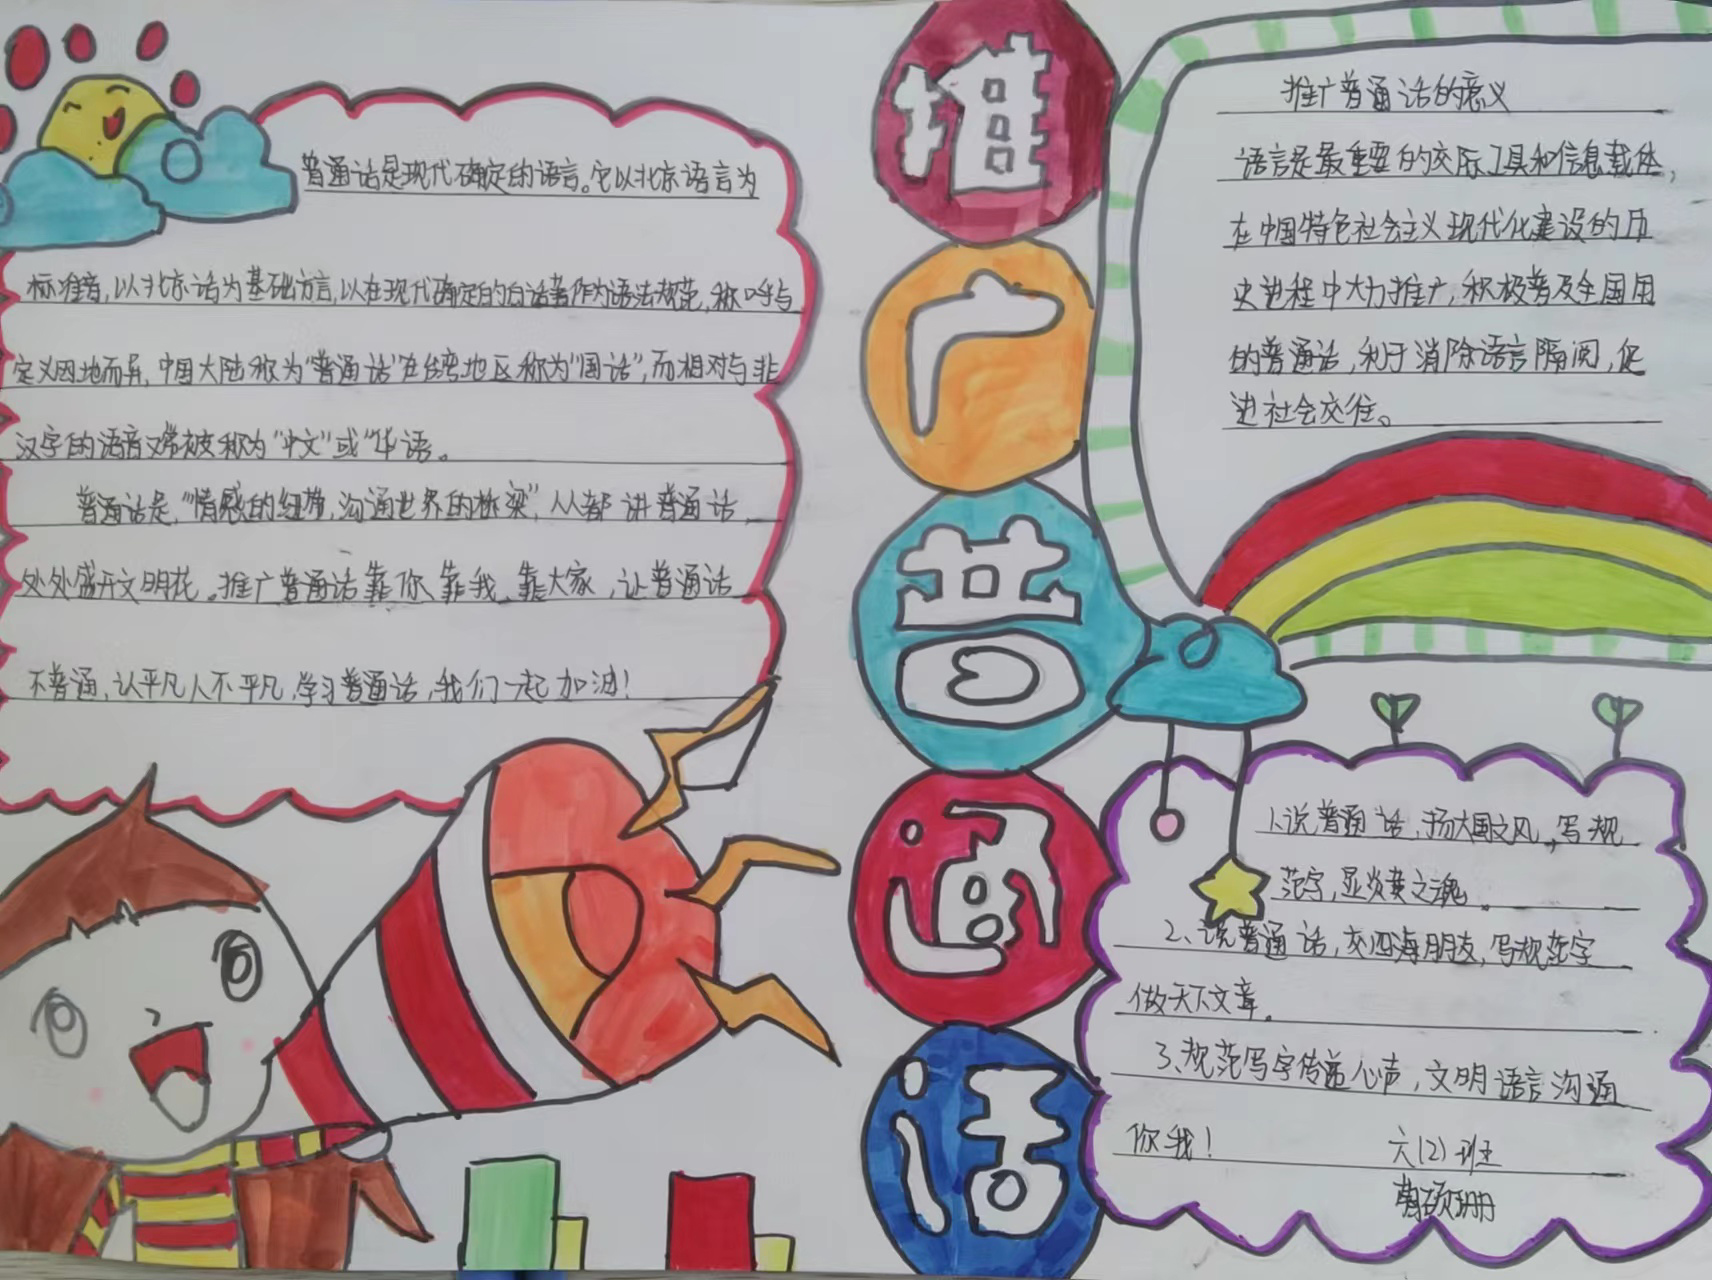 普通话是现代确定的语言。它以北京语言为
标准音，以北京话为基础方言，以在现代确定的白话著作为语法规范，称呼与
定义因地而异，中国大陆称为“普通话”在台湾地区称为“国话”，而相对与非
汉字的语言又常被称为“中文”或“华语。
普通话是，“情感的纽带，沟通世界的桥梁”，人都讲普通话
处处盛开文明花。推广普通话靠你、靠我、靠大家，让普通话
不普通，认平凡人不平凡，学习普通话，我们一起加油！
推
广
普
通
话
推广普通话的意义
语言是最重要的交际工具和信息载体，
在中国特色社会主义现代化建设的历
史进程中大力推广，积极普及全国用
的普通话，利于消除语言隔阂，促
进社会交往。
1、说普通话，扬大国之风，写规
范字，显炎黄之魂。
2、说普通话，交四海朋友，写规范字
做天下文章。
3、规范写字传递心声，文明语言沟通
你我！
六(2)班
硕珊